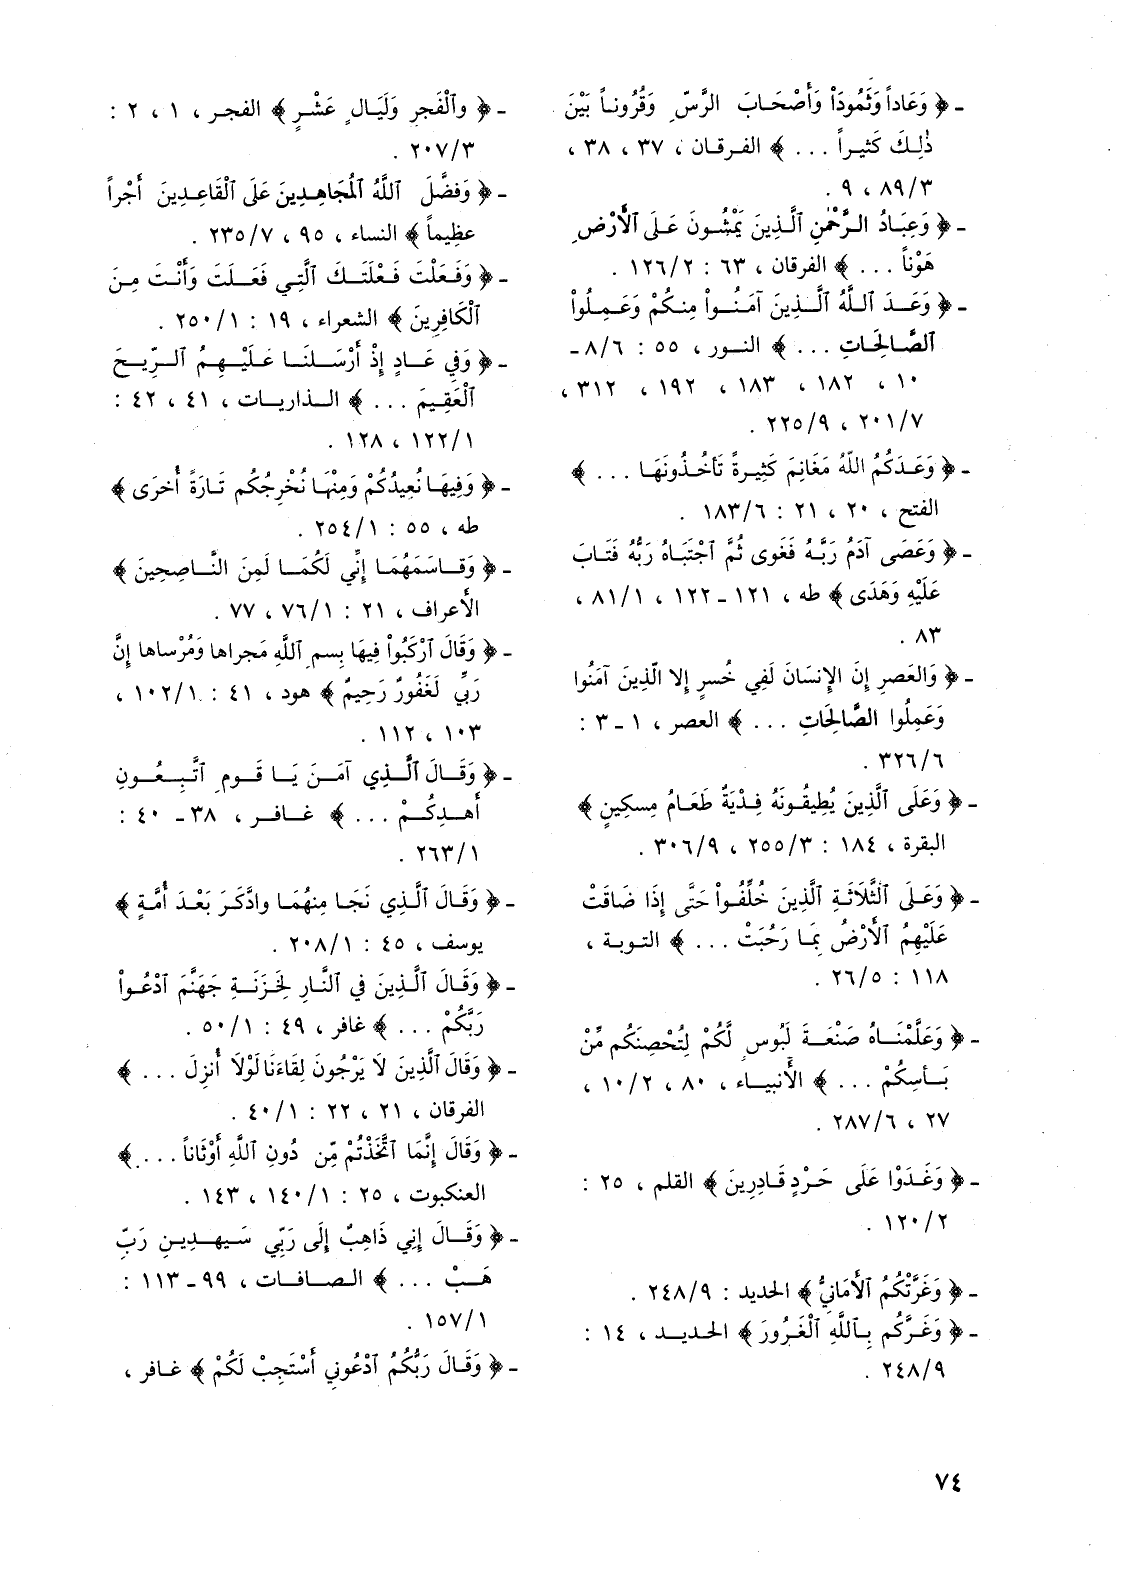 - ﴿ وَعَاداً وَثَمُودَاْ وَأَصْحَابَ الرَّسِّ وَقُرُوناً بَيْنَ
ذٰلِكَ كَثِيراً ... ﴾ الفرقان ، ٣٧ ، ٣٨ ،
٨٩/٣ ، ٩ .
- ﴿ وَعِبَادُ الرَّحْمٰنِ ٱلَّذِينَ يَمْشُونَ عَلَى ٱلأَرْضِ
هَوْناً ... ﴾ الفرقان ، ٦٣ : ١٢٦/٢ .
- ﴿ وَعَدَ ٱللَّهُ ٱلَّذِينَ آمَنُواْ مِنكُمْ وَعَمِلُواْ
ٱلصَّالِحَاتِ ... ﴾ النور ، ٥٥ : ٨/٦ -
١٠ ، ١٨٢ ، ١٨٣ ، ١٩٢ ، ٣١٢ ،
٢٠١/٧ ، ٢٢٥/٩ .
- ﴿ وَعَدَكُمُ اللَّهُ مَغَانِمَ كَثِيرةً تَأخُذُونَهَا ... ﴾
الفتح ، ٢٠ ، ٢١ : ١٨٣/٦ .
- ﴿ وَعَصَى آدَمُ رَبَّهُ فَغَوى ثُمَّ ٱجْتَبَاهُ رَبُّهُ فَتَابَ
عَلَيْهِ وَهَدَى ﴾ طه ، ١٢١ - ١٢٢ ، ٨١/١ ،
٨٣ .
- ﴿ وَالعَصرِ إِنَ الإِنسَانَ لَفِي خُسرٍ إِلا الّذِينَ آمَنُوا
وَعَمِلُوا الصَّالِحَاتِ ... ﴾ العصر ، ١ - ٣ :
٣٢٦/٦ .
- ﴿ وَعَلَى ٱلَّذِينَ يُطِيقُونَهُ فِدْيَةٌ طَعَامُ مِسكِينٍ ﴾
البقرة ، ١٨٤ : ٢٥٥/٣ ، ٣٠٦/٩ .
- ﴿ وَعَلَى ٱلثَّلاَثَةِ ٱلَّذِينَ خُلِّفُواْ حَتَّى إِذَا ضَاقَتْ
عَلَيْهِمُ ٱلأَرْضُ بِمَا رَحُبَتْ ... ﴾ التوبة ،
١١٨ : ٢٦/٥ .
- ﴿ وَعَلَّمْنَاهُ صَنْعَةَ لَبُوسٍ لَّكُمْ لِتُحْصِنَكُم مِّنْ
بَأسِكُمْ ... ﴾ الأَنبياء ، ٨٠ ، ١٠/٢ ،
٢٧ ، ٢٨٧/٦ .
- ﴿ وَغَدَوْا عَلَى حَرْدٍ قَادِرِينَ ﴾ القلم ، ٢٥ :
١٢٠/٢ .
- ﴿ وَغَرَّتْكُمُ ٱلأَمَانِيُّ ﴾ الحديد : ٢٤٨/٩ .
- ﴿ وَغَرَّكُم بِٱللَّهِ ٱلْغَرُورَ ﴾ الحديد ، ١٤ :
٢٤٨/٩ .
- ﴿ وٱلْفَجرِ وَلَيَالٍ عَشْرٍ ﴾ الفجر ، ١ ، ٢ :
٢٠٧/٣ .
- ﴿ وَفَضَّلَ ٱللَّهُ ٱلمُجَاهِدِينَ عَلَى ٱلْقَاعِدِينَ أَجْراً
عظيماً ﴾ النساء ، ٩٥ ، ٢٣٥/٧ .
- ﴿ وَفَعَلْتَ فَعْلَتَكَ ٱلَّتِي فَعَلَتَ وَأَنْتَ مِنَ
ٱلْكَافِرِينَ ﴾ الشعراء ، ١٩ : ٢٥٠/١ .
- ﴿ وَفِي عَادٍ إِذْ أَرْسَلنَا عَلَيْهِمُ ٱلرِّيحَ
ٱلْعَقِيمَ ... ﴾ الذاريات ، ٤١ ، ٤٢ :
١٢٢/١ ، ١٢٨ .
- ﴿ وَفِيهَا نُعِيدُكُمْ وَمِنْهَا نُخْرِجُكُم تَارَةً أُخرَى ﴾
طه ، ٥٥ : ٢٥٤/١ .
- ﴿ وَقَاسَمَهُمَا إِنِّي لَكُمَا لَمِنَ النَّاصِحِينَ ﴾
الأعراف ، ٢١ : ٧٦/١ ، ٧٧ .
- ﴿ وَقَالَ ٱرْكَبُواْ فِيهَا بِسمِ ٱللَّهِ مَجراها وَمُرْساها إِنَّ
رَبِّي لَغَفُورٌ رَحِيمٌ ﴾ هود ، ٤١ : ١٠٢/١ ،
١٠٣ ، ١١٢ .
- ﴿ وَقَالَ ٱلَّذِي آمَنَ يَا قَومِ ٱتَّبِعُونِ
أَهدِكُمْ ... ﴾ غافر ، ٣٨ - ٤٠ :
٢٦٣/١ .
- ﴿ وَقَالَ ٱلَّذِي نَجَا مِنهُمَا وادَّكَرَ بَعْدَ أُمَّةٍ ﴾
يوسف ، ٤٥ : ٢٠٨/١ .
- ﴿ وَقَالَ ٱلَّذِينَ فِي ٱلنَّارِ لِخَزَنَةِ جَهَنَّمَ ٱدْعُواْ
رَبَّكُمْ ... ﴾ غافر ، ٤٩ : ٥٠/١ .
- ﴿ وَقَالَ ٱلَّذِينَ لاَ يَرْجُونَ لِقَاءَنَا لَوْلاَ أُنزِلَ ... ﴾
الفرقان ، ٢١ ، ٢٢ : ٤٠/١ .
- ﴿ وَقَالَ إِنَّمَا ٱتَّخَذْتُمْ مِّن دُونِ ٱللَّهِ أَوْثَاناً .... ﴾
العنكبوت ، ٢٥ : ١٤٠/١ ، ١٤٣ .
- ﴿ وَقَالَ إِنِي ذَاهِبٌ إِلَى رَبِّي سَيهدِينِ رَبِّ
هَبْ ... ﴾ الصافات ، ٩٩ - ١١٣ :
١٥٧/١ .
- ﴿ وَقَالَ رَبُّكُمُ ٱدْعُونِي أَسْتَجِبْ لَكُمْ ﴾ غافر ،
٧٤